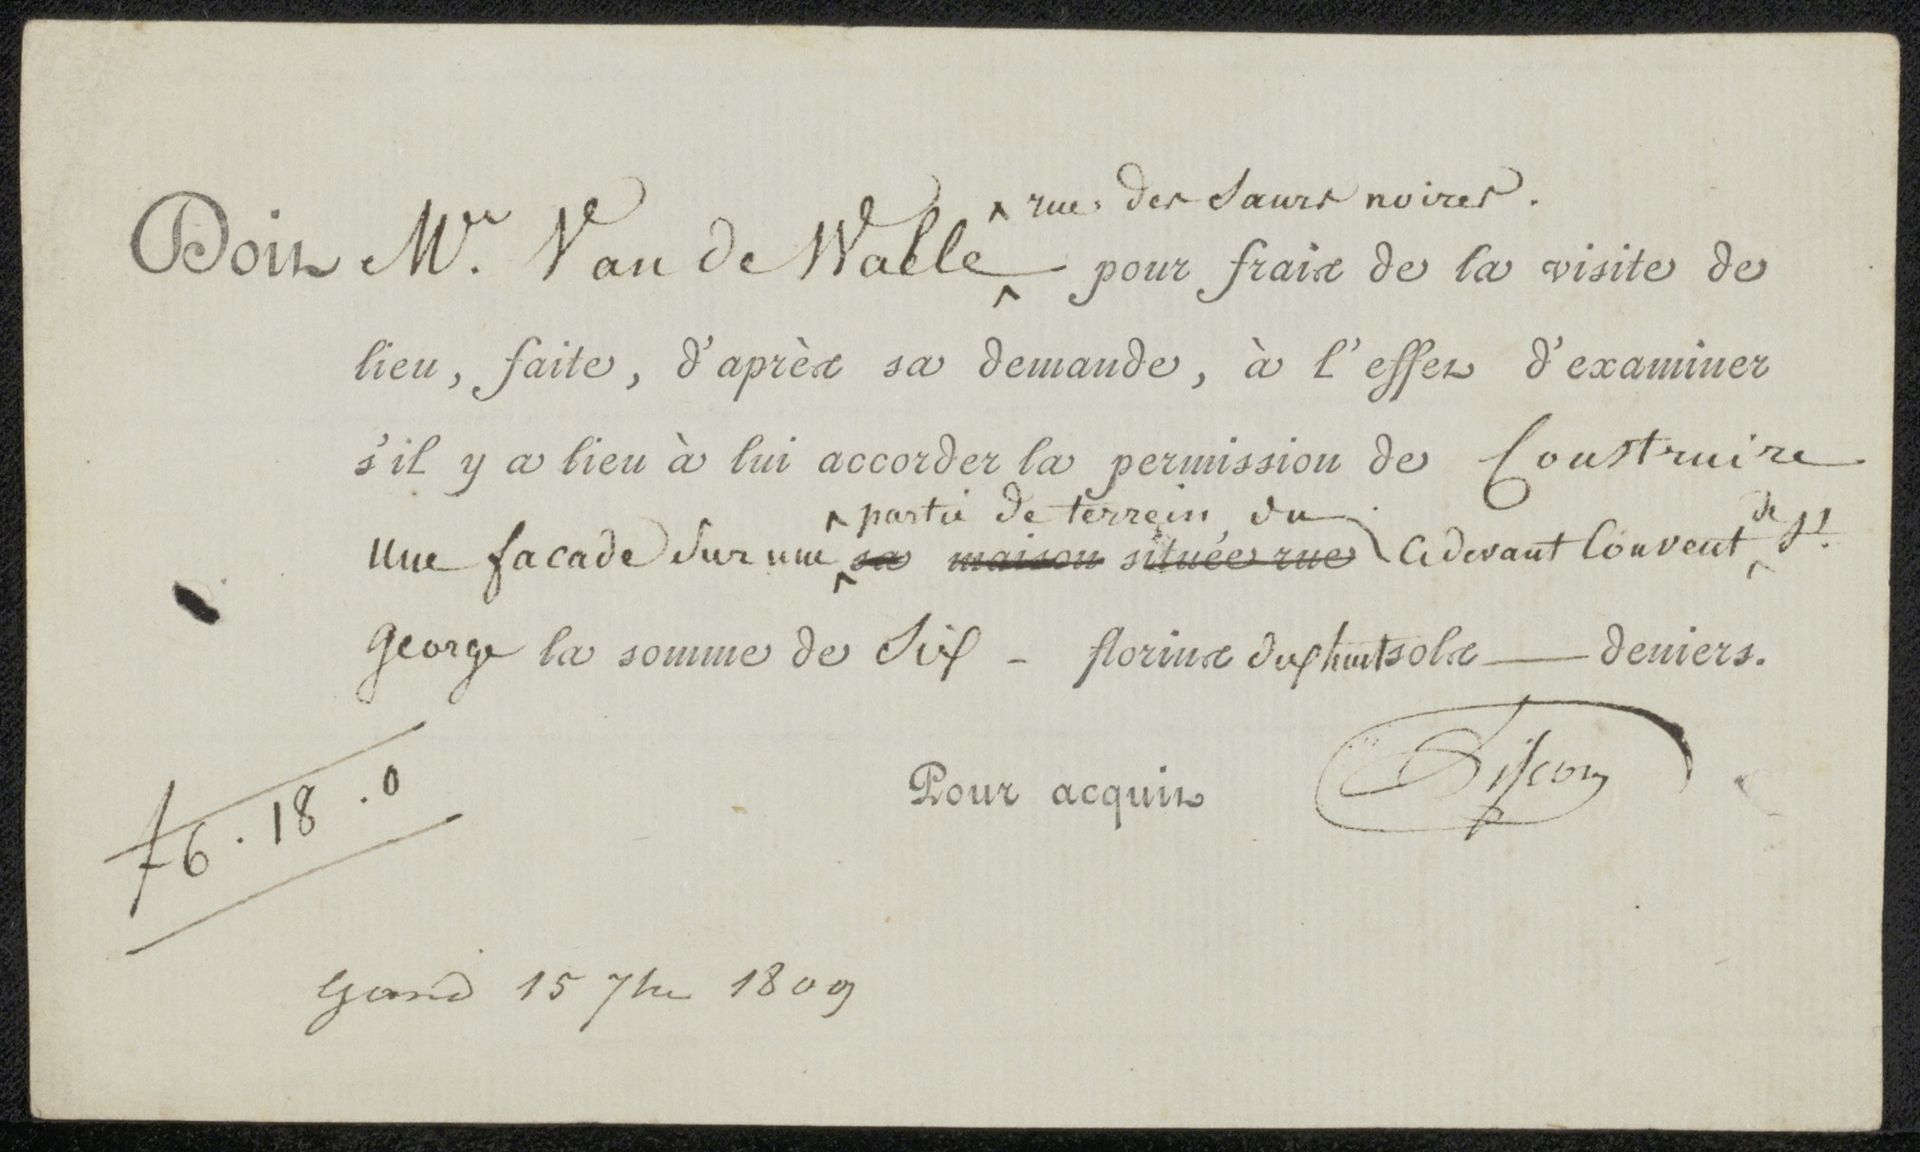 rue des Saurs noires.
Doit Mr. Van de Walle pour frais de la visite de
lieu, faite, d'après sa demande, à l'effet d'examiner
s'il y a lieu à lui accorder la permission de Construire
partie de terrein du de
Une facade Sur une sa maison située rue Cidevant Couvent St.
George la somme de Six - florins dixhuit sols — deniers.
f 6.18.0
Pour acquit
Gand 15 7bre 1809